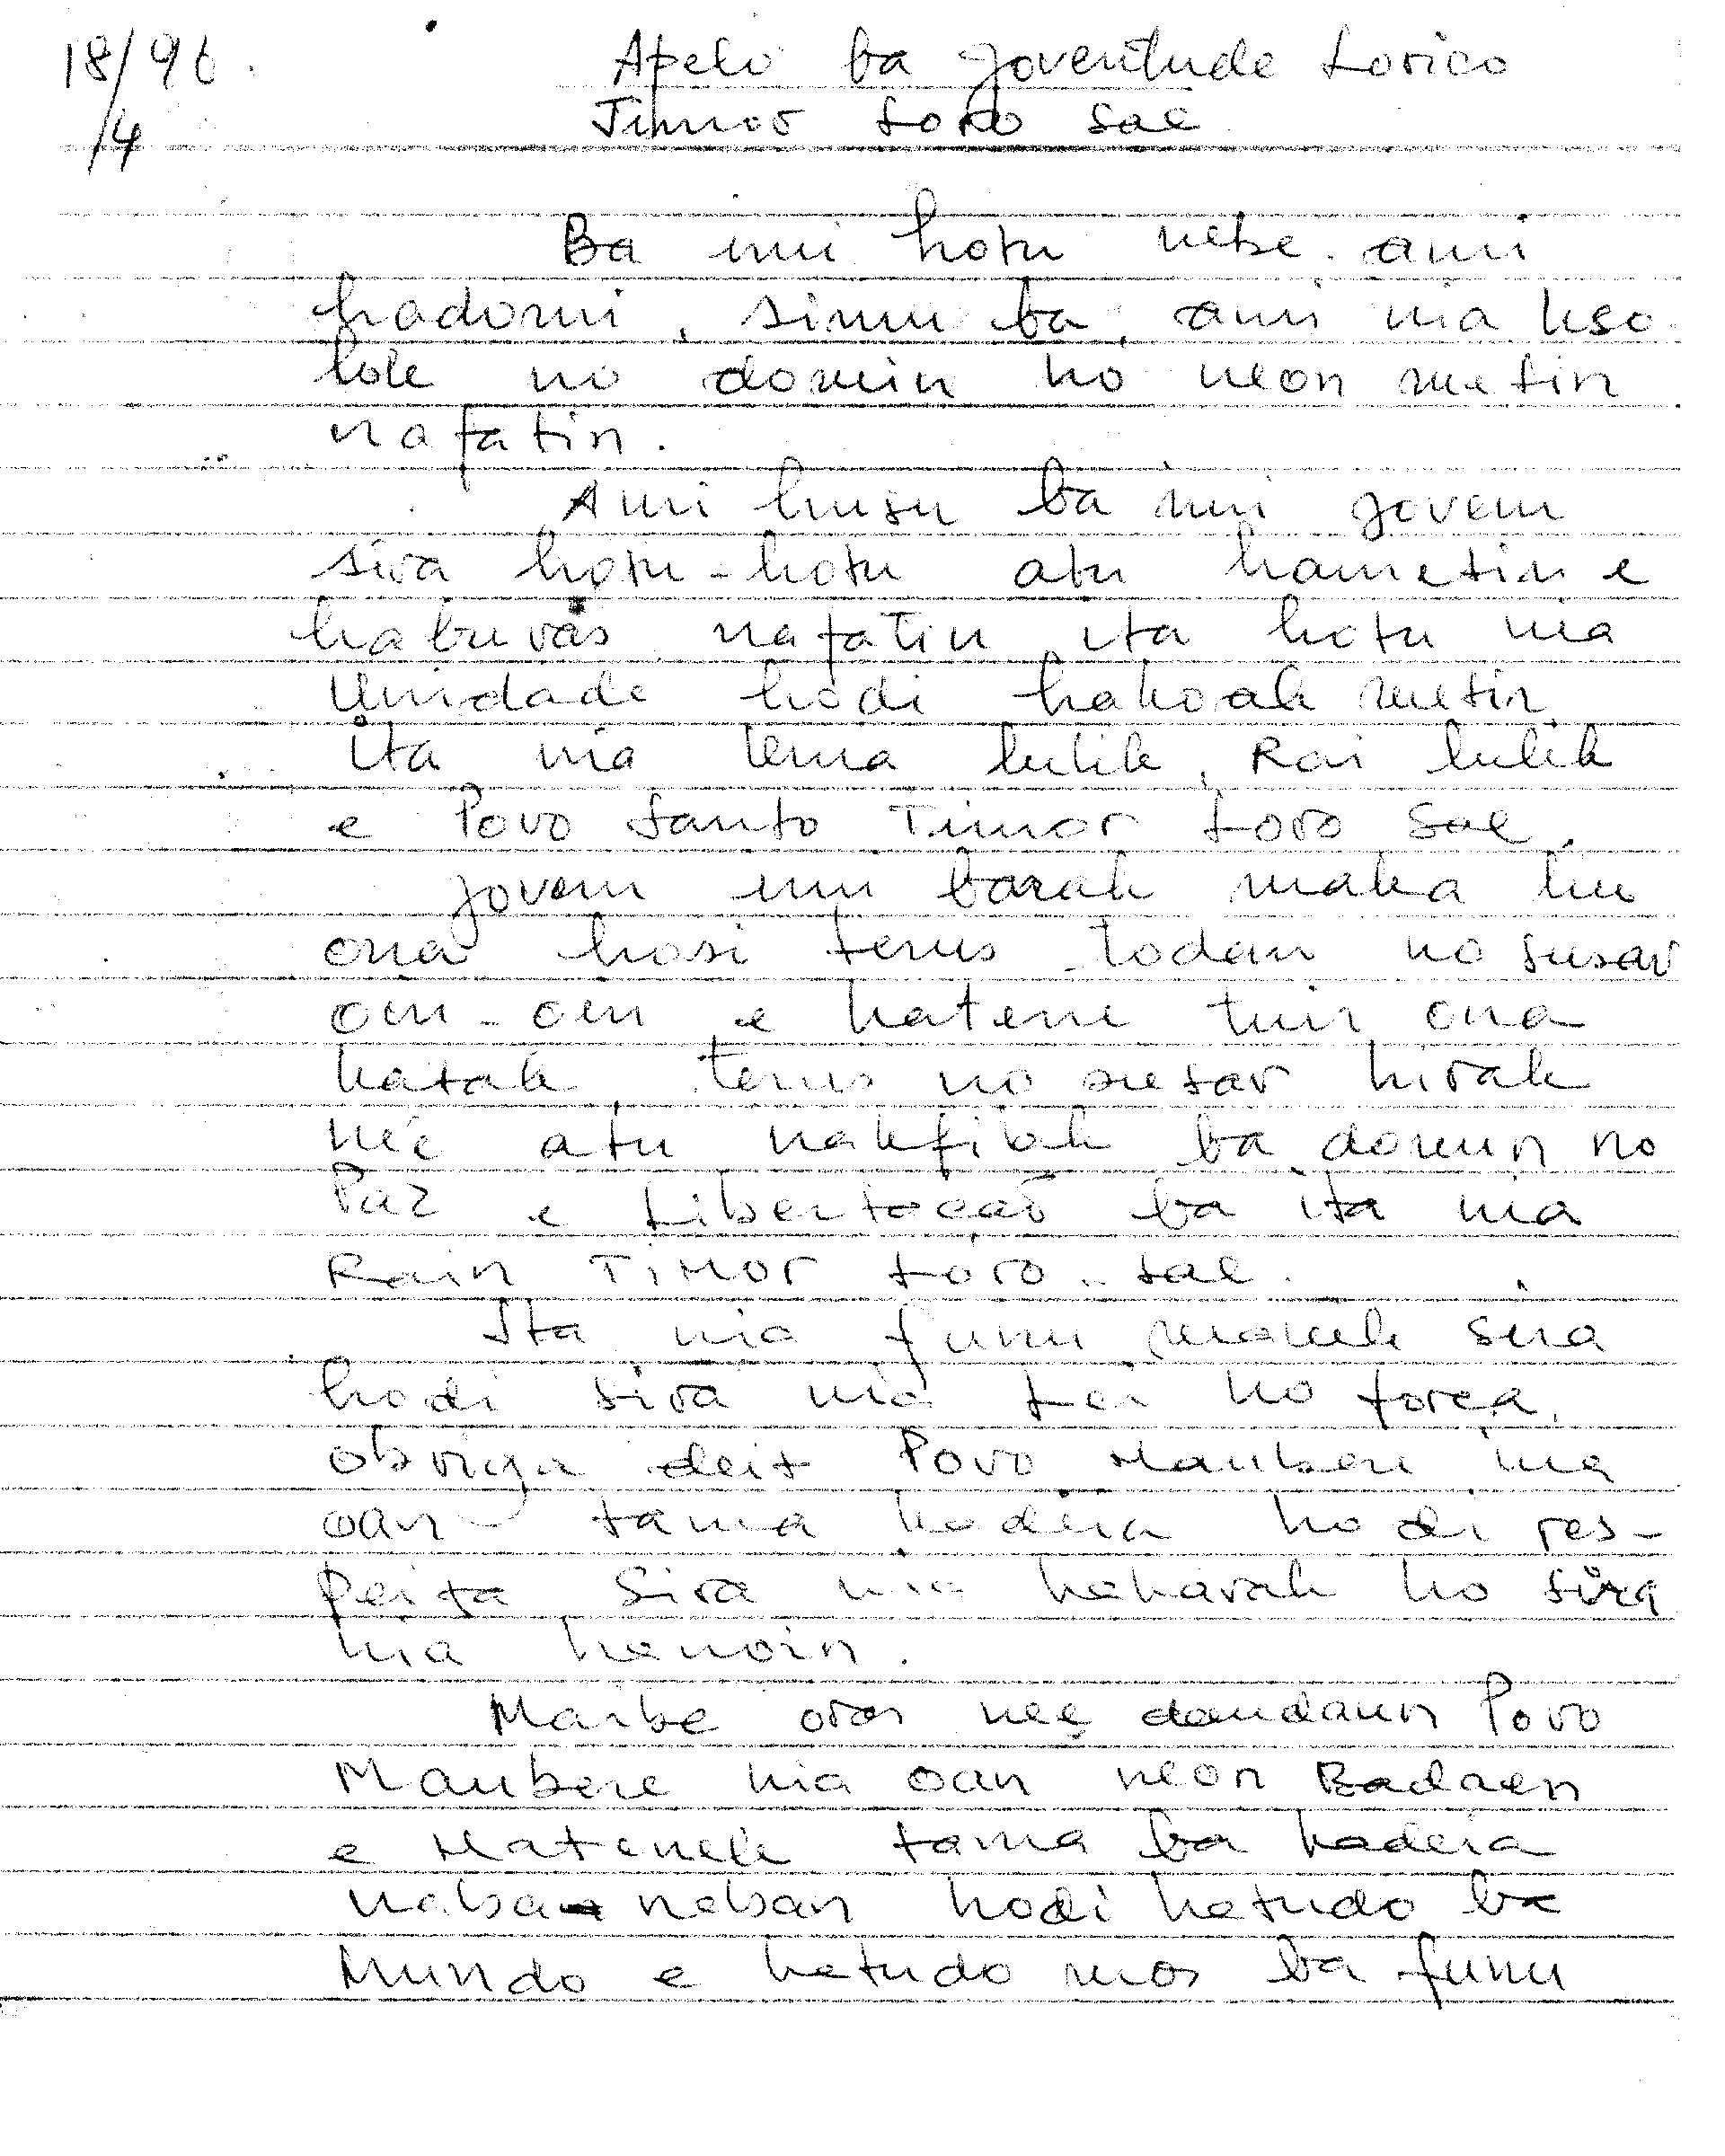 18/96
/4
Apelo ba joventude Lorico
Timor Loro Sae
Ba imi hotu nebe ami
hadomi, simu ba, ami nia kso
lok no domin ho neon metin
nafatin.
Ami husu ba imi jovem
sira hotu-hotu atu hametin e
haburas nafatin ita hotu nia
Unidade hodi hakoak metin
ita nia tema lulik, Rai lulik
e Povo Santo Timor Loro Sae.
Jovem imi barak maka liu
ona hosi terus todan no susar
oin-oin e hatene tuir ona
katak, terus no susar hirak
ne'e atu nakfilak ba domin no
Paz e Libertação ba ita nia
Rain TiMor Loro-Sae.
Ita nia funu maluk sira
hodi sira nia Lei no força,
obriga deit Povo Maubere nia
oan tama kadeia hodi res-
peita Sira nia hakarak ho sira
nia hanoin.
Maibe oras nee daudaun Povo
Maubere nia oan neon Badaen
e Matenek tama ba kadeia
naban naban hodi hatudo ba
Mundo e hatudo mos ba funu